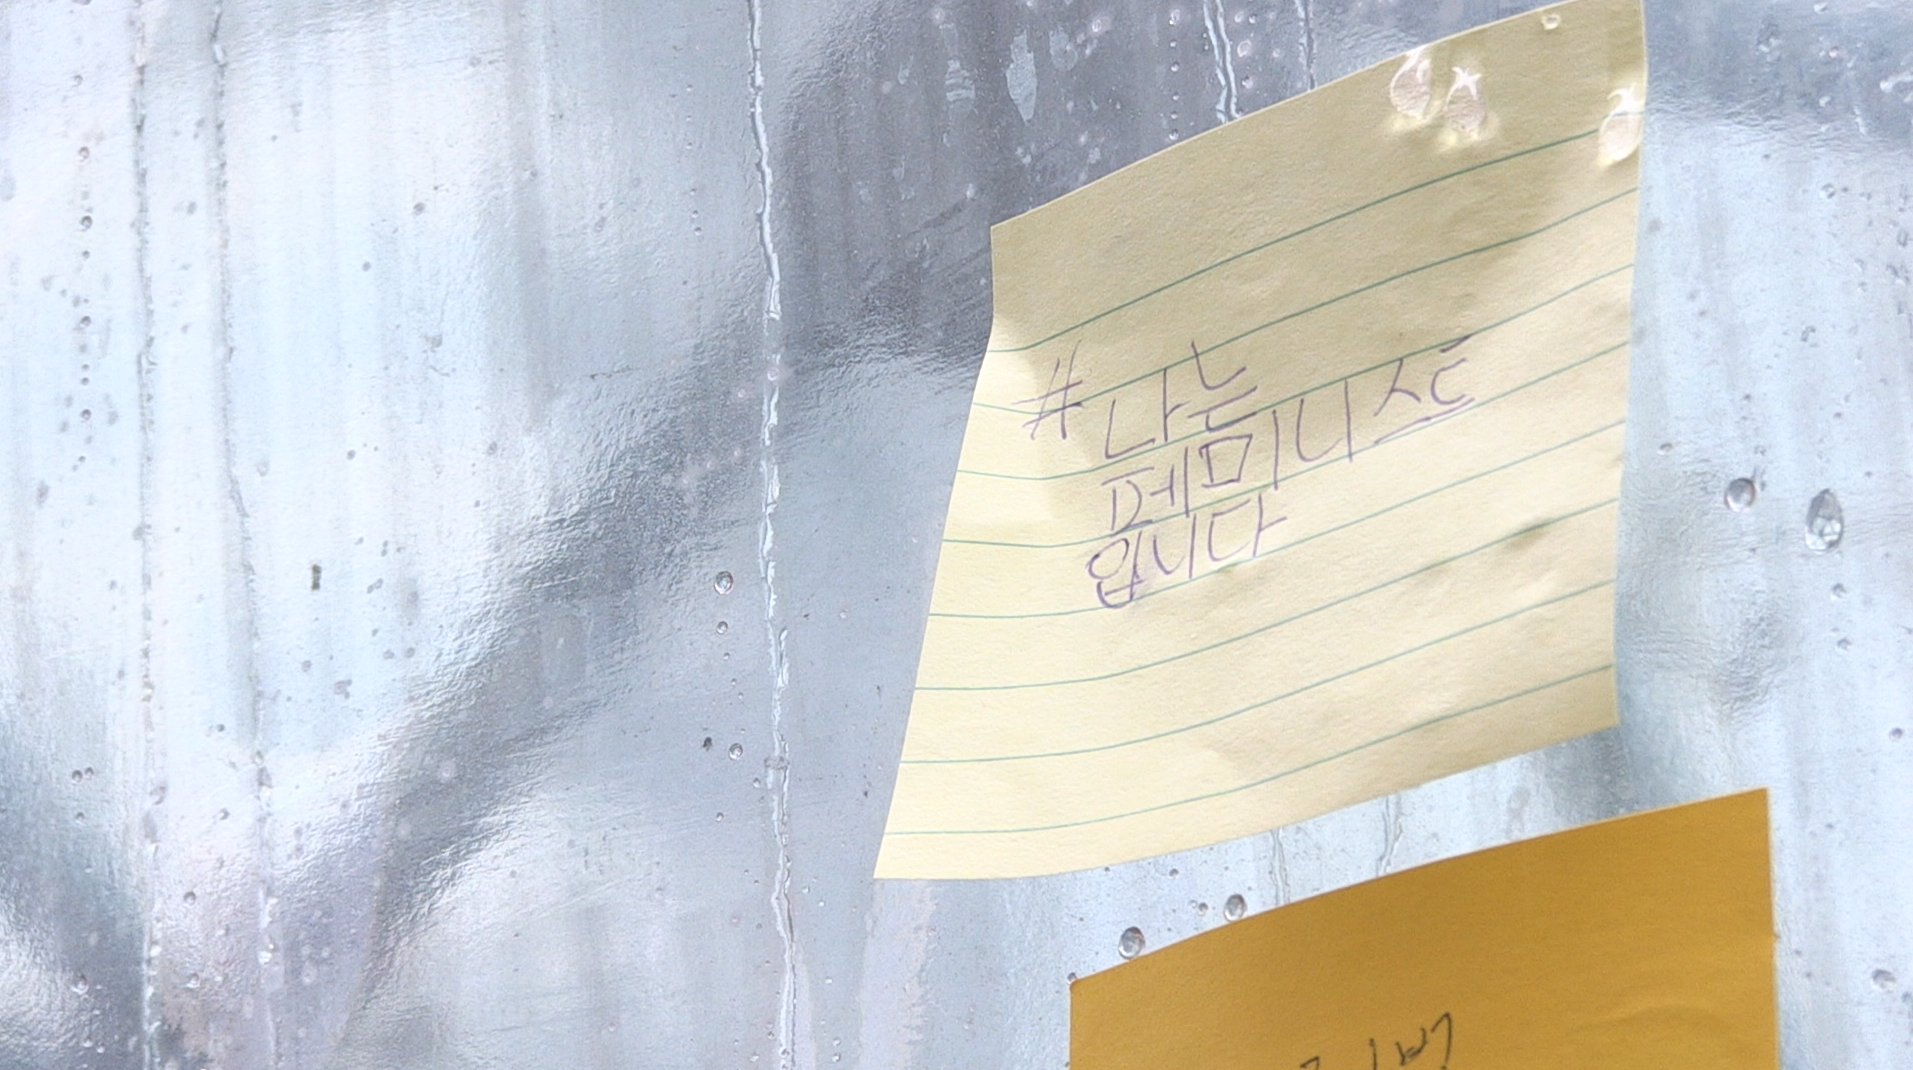 #나는
페미니스트
입니다